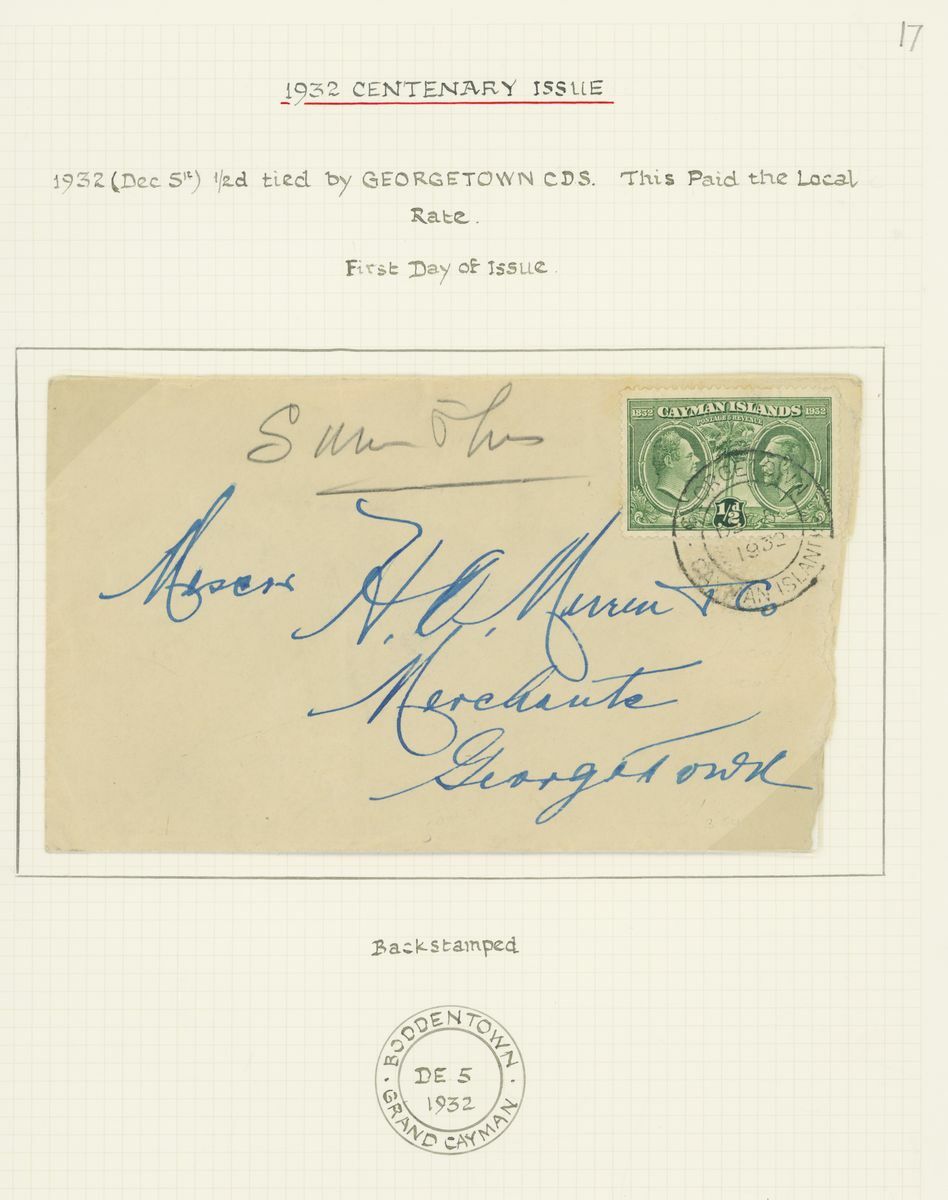 17
1932 CENTENARY ISSUE
1932 (Dec 5th) ½d tied by GEORGETOWN CDS. This Paid the Local
Rate.
First Day of Issue.
1832 CAYMAN ISLANDS 1932
POSTAGE & REVENUE
½d
GEORGETOWN
1932
CAYMAN ISLANDS
Messrs H. O. Merren & Co
Merchants
Georgetown
Backstamped
BODDENTOWN
DE 5
1932
GRAND CAYMAN